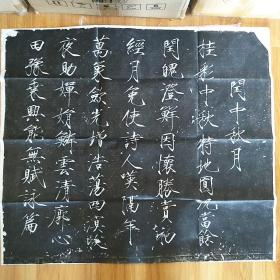 閏中秋月
桂彩中秋特地圓況當餘
閏魄澄鮮因懷勝賞初
經月免使詩人嘆隔年
萬象歛光增浩蕩四溟收
夜助嬋娟鱗雲清廓心
田豫乘興能無賦詠篇